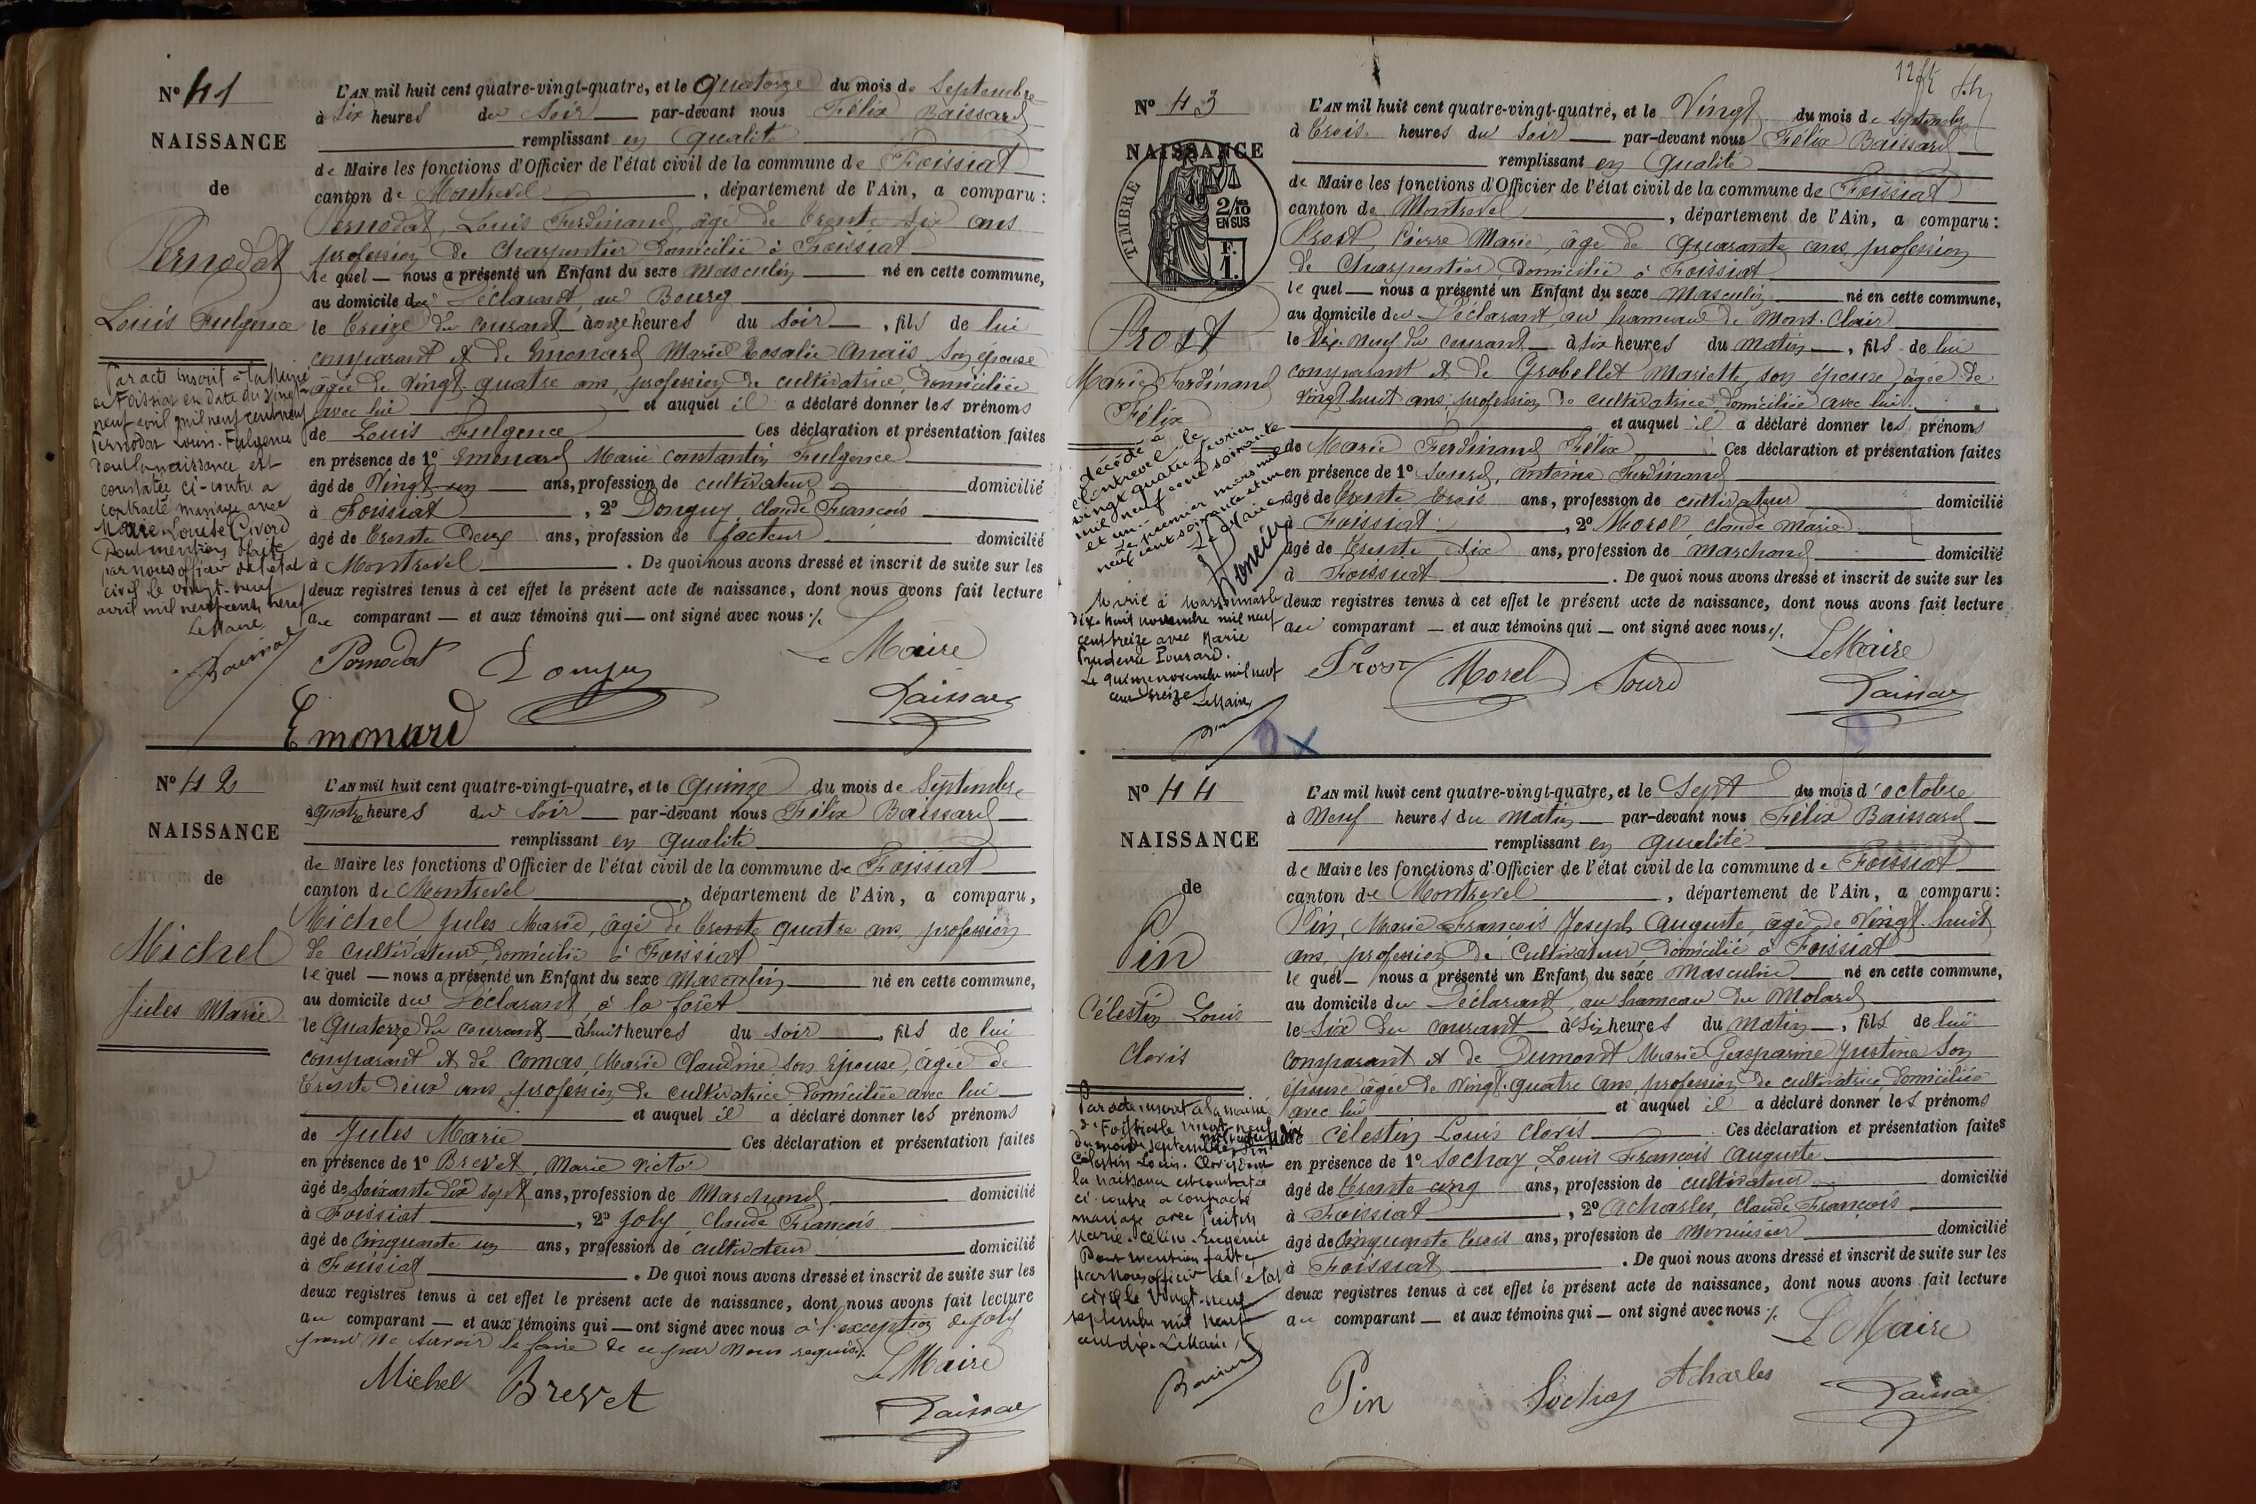 Nº 41
NAISSANCE
de
Pernodat
Louis Fulgence
Par acte inscrit à la Mairie
de Foissiat en date du vingt
neuf avril mil neuf cent neuf
Pernodat Louis-Fulgence
dont la naissance est
constatée ci-contre a
contracté mariage avec
Marie Louise Civord
Dont mention faite
par nous officier de l'état
civil le vingt-neuf
avril mil neuf cent neuf
Le Maire
L'AN mil huit cent quatre-vingt-quatre, et le Quatorze du mois de Septembre
à six heures du soir par-devant nous Félix Baissard
remplissant en qualité
de Maire les fonctions d'Officier de l'état civil de la commune de Foissiat
canton de Montrevel, département de l'Ain, a comparu :
Pernodat, Louis Ferdinand, âgé de trente six ans
profession de charpentier domicilié à Foissiat
lequel nous a présenté un Enfant du sexe masculin né en cette commune,
au domicile du Déclarant, au Bourg
le treize du courant à onze heures du soir, fils de lui
comparant et de Emonard Marie Rosalie Anaïs son épouse
âgée de vingt-quatre ans, profession de cultivatrice, domiciliée
avec lui et auquel il a déclaré donner les prénoms
de Louis Fulgence Ces déclaration et présentation faites
en présence de 1º Emonard Marie Constantin Fulgence
âgé de vingt-un ans, profession de cultivateur domicilié
à Foissiat, 2º Donguy Claude François
âgé de trente deux ans, profession de facteur domicilié
à Montrevel. De quoi nous avons dressé et inscrit de suite sur les
deux registres tenus à cet effet le présent acte de naissance, dont nous avons fait lecture
au comparant et aux témoins qui ont signé avec nous ./.
Pernodat Donguy Le Maire
Emonard Baissard
Nº 42
NAISSANCE
de
Michel
Jules Marie
L'AN mil huit cent quatre-vingt-quatre, et le quinze du mois de Septembre
à quatre heures du soir par-devant nous Félix Baissard
remplissant en qualité
de Maire les fonctions d'Officier de l'état civil de la commune de Foissiat
canton de Montrevel, département de l'Ain, a comparu,
Michel Jules Marie, âgé de trente quatre ans, profession
de cultivateur domicilié à Foissiat
lequel nous a présenté un Enfant du sexe masculin né en cette commune,
au domicile du Déclarant, à la forêt
le Quatorze du courant à huit heures du soir, fils de lui
comparant et de Comas, Marie Claudine son épouse, âgée de
trente deux ans, profession de cultivatrice domiciliée avec lui
et auquel il a déclaré donner les prénoms
de Jules Marie Ces déclaration et présentation faites
en présence de 1º Brevet, Marie Victor
âgé de soixante dix sept ans, profession de Marchand domicilié
à Foissiat, 2º Joly Claude François
âgé de cinquante un ans, profession de cultivateur domicilié
à Foissiat. De quoi nous avons dressé et inscrit de suite sur les
deux registres tenus à cet effet le présent acte de naissance, dont nous avons fait lecture
au comparant et aux témoins qui ont signé avec nous à l'exception de Joly
pour ne savoir le faire de ce par nous requis ./.
Michel Brevet Le Maire
Baissard
Nº 43
NAISSANCE
de
TIMBRE
2/10 EN SUS
F. 1.
Prost
Marie Ferdinand
Félix
décédé à
Montrevel le
vingt quatre février
mil neuf cent soixante
et un
Le premier mars mil
neuf cent soixante et un
Le Maire
Marié à Marsonnas le
dix-huit novembre mil neuf
cent treize avec Marie
Prudence Pousard.
Le quinze novembre mil neuf
cent treize Le Maire
L'AN mil huit cent quatre-vingt-quatre, et le Vingt du mois de septembre
à trois heures du soir par-devant nous Félix Baissard
remplissant en qualité
de Maire les fonctions d'Officier de l'état civil de la commune de Foissiat
canton de Montrevel, département de l'Ain, a comparu :
Prost, Pierre Marie, âgé de quarante ans, profession
de Charpentier, domicilié à Foissiat
lequel nous a présenté un Enfant du sexe masculin né en cette commune,
au domicile du Déclarant, au hameau de Mont-Clair
le Dix-neuf du courant à six heures du matin, fils de lui
comparant et de Grobellet Mariette, son épouse, âgée de
vingt huit ans, profession de cultivatrice, domiciliée avec lui
et auquel il a déclaré donner les prénoms
de Marie Ferdinand Félix Ces déclaration et présentation faites
en présence de 1º Sourd, Antoine Ferdinand
âgé de trente trois ans, profession de cultivateur domicilié
à Foissiat, 2º Morel Claude Marie
âgé de trente six ans, profession de marchand domicilié
à Foissiat. De quoi nous avons dressé et inscrit de suite sur les
deux registres tenus à cet effet le présent acte de naissance, dont nous avons fait lecture
au comparant et aux témoins qui ont signé avec nous ./.
Le Maire
Prost Morel Sourd Baissard
Nº 44
NAISSANCE
de
Pin
Célestin Louis
Clovis
Par acte inscrit à la mairie
de Foissiat le vingt-neuf
du mois de septembre mil neuf cent dix Pin
Célestin Louis-Clovis dont
la naissance est constatée
ci-contre a contracté
mariage avec Poisten
Marie-Célina-Eugénie
Dont mention faite
par nous officier de l'état
civil le vingt-neuf
septembre mil neuf
cent dix. Le Maire
L'AN mil huit cent quatre-vingt-quatre, et le Sept du mois d'octobre
à Neuf heures du matin par-devant nous Félix Baissard
remplissant en qualité
de Maire les fonctions d'Officier de l'état civil de la commune de Foissiat
canton de Montrevel, département de l'Ain, a comparu :
Pin, Marie François Joseph Auguste, âgé de vingt-huit
ans, profession de Cultivateur domicilié à Foissiat
lequel nous a présenté un Enfant du sexe masculin né en cette commune,
au domicile du Déclarant, au hameau du Molard
le six du courant à six heures du matin, fils de lui
comparant et de Dumont Marie Gasparine Justine son
épouse âgée de vingt-quatre ans, profession de cultivatrice, domiciliée
avec lui et auquel il a déclaré donner les prénoms
de Célestin Louis Clovis Ces déclaration et présentation faites
en présence de 1º Sochay, Louis François Auguste
âgé de trente cinq ans, profession de cultivateur domicilié
à Foissiat, 2º Acharles, Claude François
âgé de cinquante trois ans, profession de Menuisier domicilié
à Foissiat. De quoi nous avons dressé et inscrit de suite sur les
deux registres tenus à cet effet le présent acte de naissance, dont nous avons fait lecture
au comparant et aux témoins qui ont signé avec nous ./.
Le Maire
Pin Sochay Acharles Baissard